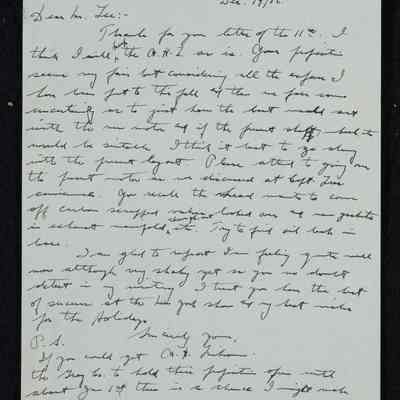 Dec. 19/12
Dear Mr. Lee:-
Thanks for your letter of the 11th. I
think I will the as is. Your proposition
seems very fair but considering all the expense I
have been put to the fall
uncertainty as to just how the boat would act
with the new motor if the present shaft
would be suitable I think it best to go along
with the present layout Please attend to going over
the present motor as we discussed at Capt.
convenience. You recall the head wants to come
off carbon scraped valves looked over new gaskets
in exhaust manifold, etc. Try to find oil leak in
base.
I am glad to report I am feeling quite well
now although very shaky yet as you no doubt
detect in my writing I trust you have the best
of success at the New York show my best wishes
for the Holidays.
Sincerely yours,
P.S.
If you could get
the Gray Co. to hold this proposition open until
about Jan 1st there is a chance I might make